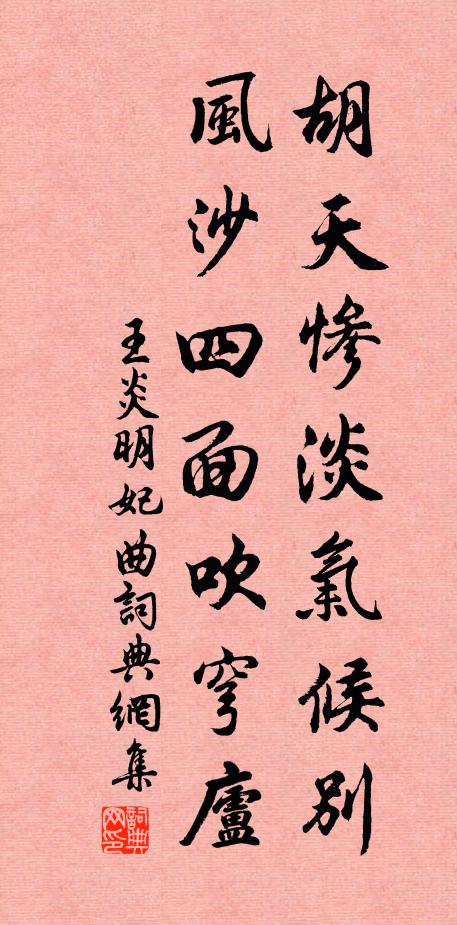 胡天慘淡氣候別
風沙四面吹穹廬
王炎明妃曲詞典網集
詞典网印